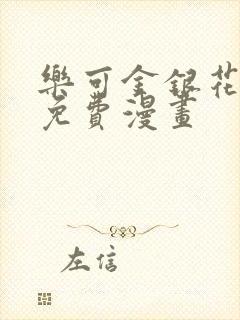 樂可金銀花
免費漫畫
左信